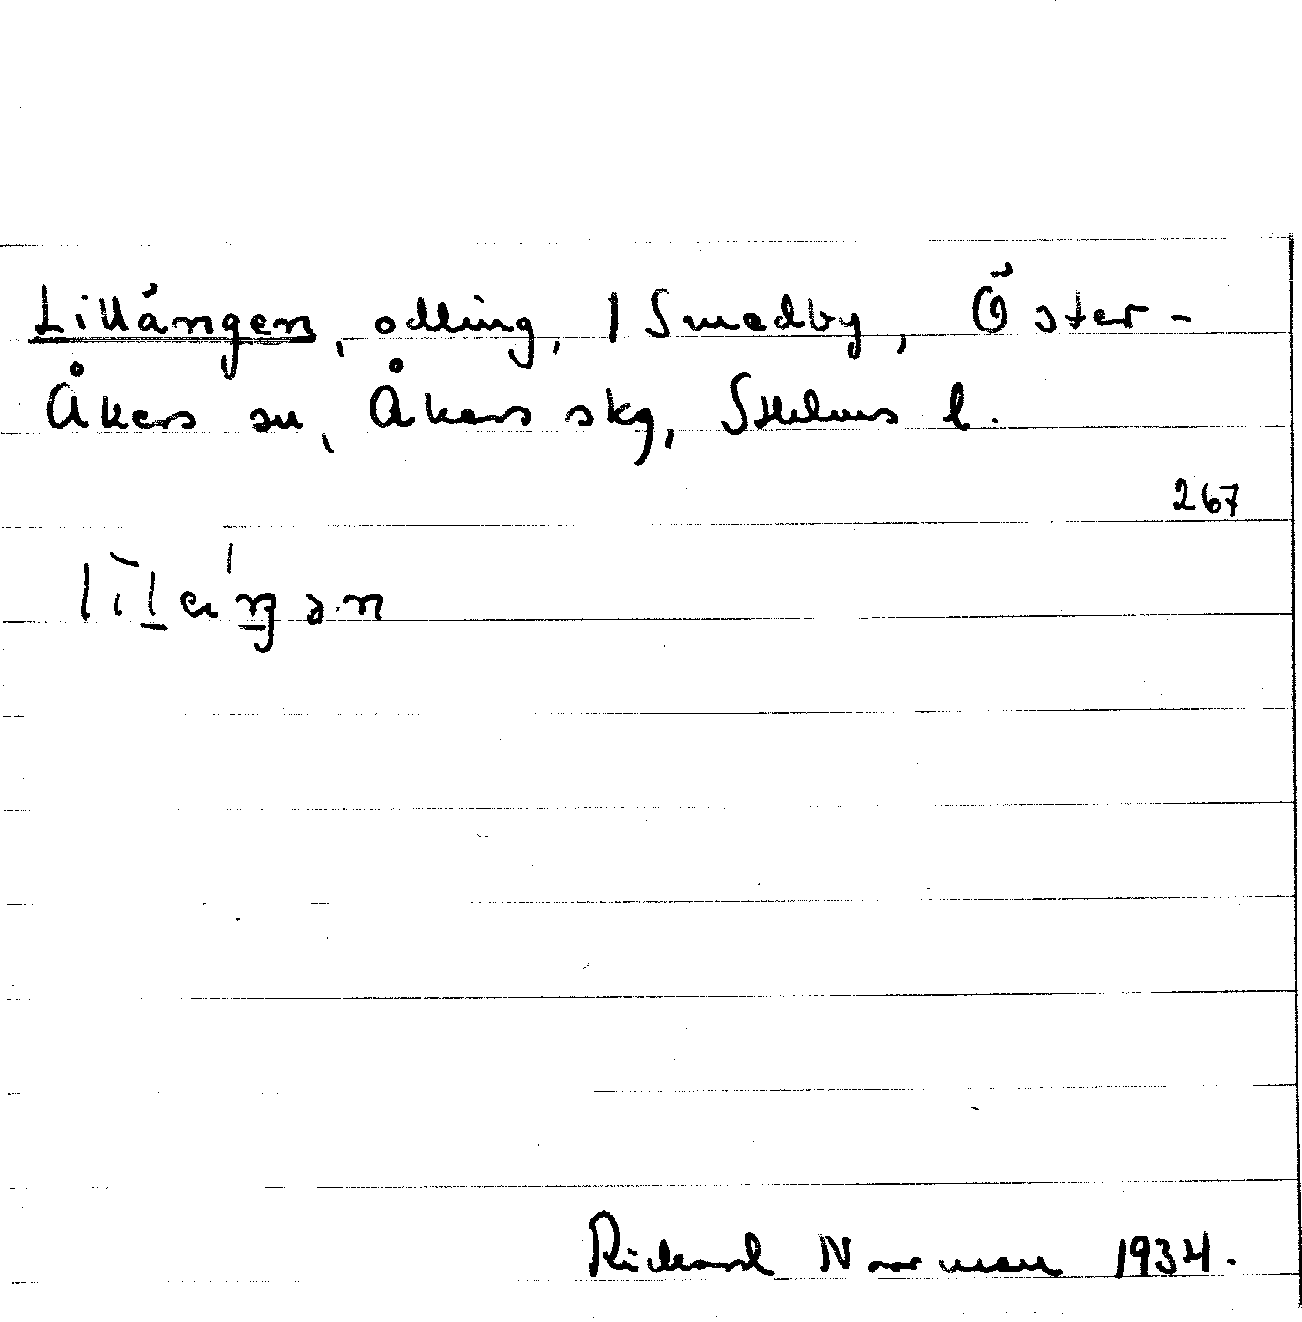 Lillängen, odling, 1 Smedby, Öster-
Åkers sn, Åkers skg, Sthlms l.
267
Rickard Norrman 1934.